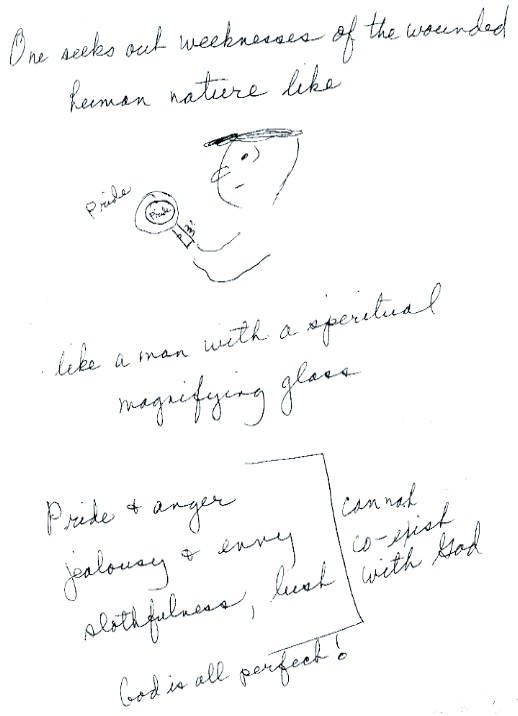 One seeks out weeknesses of the wounded
human nature like
Pride
Pride
like a man with a speritual
magnifying glass
Pride & anger
jealousy & envy
slothfulness, lust
cannot
co-exist
with God
God is all perfect!